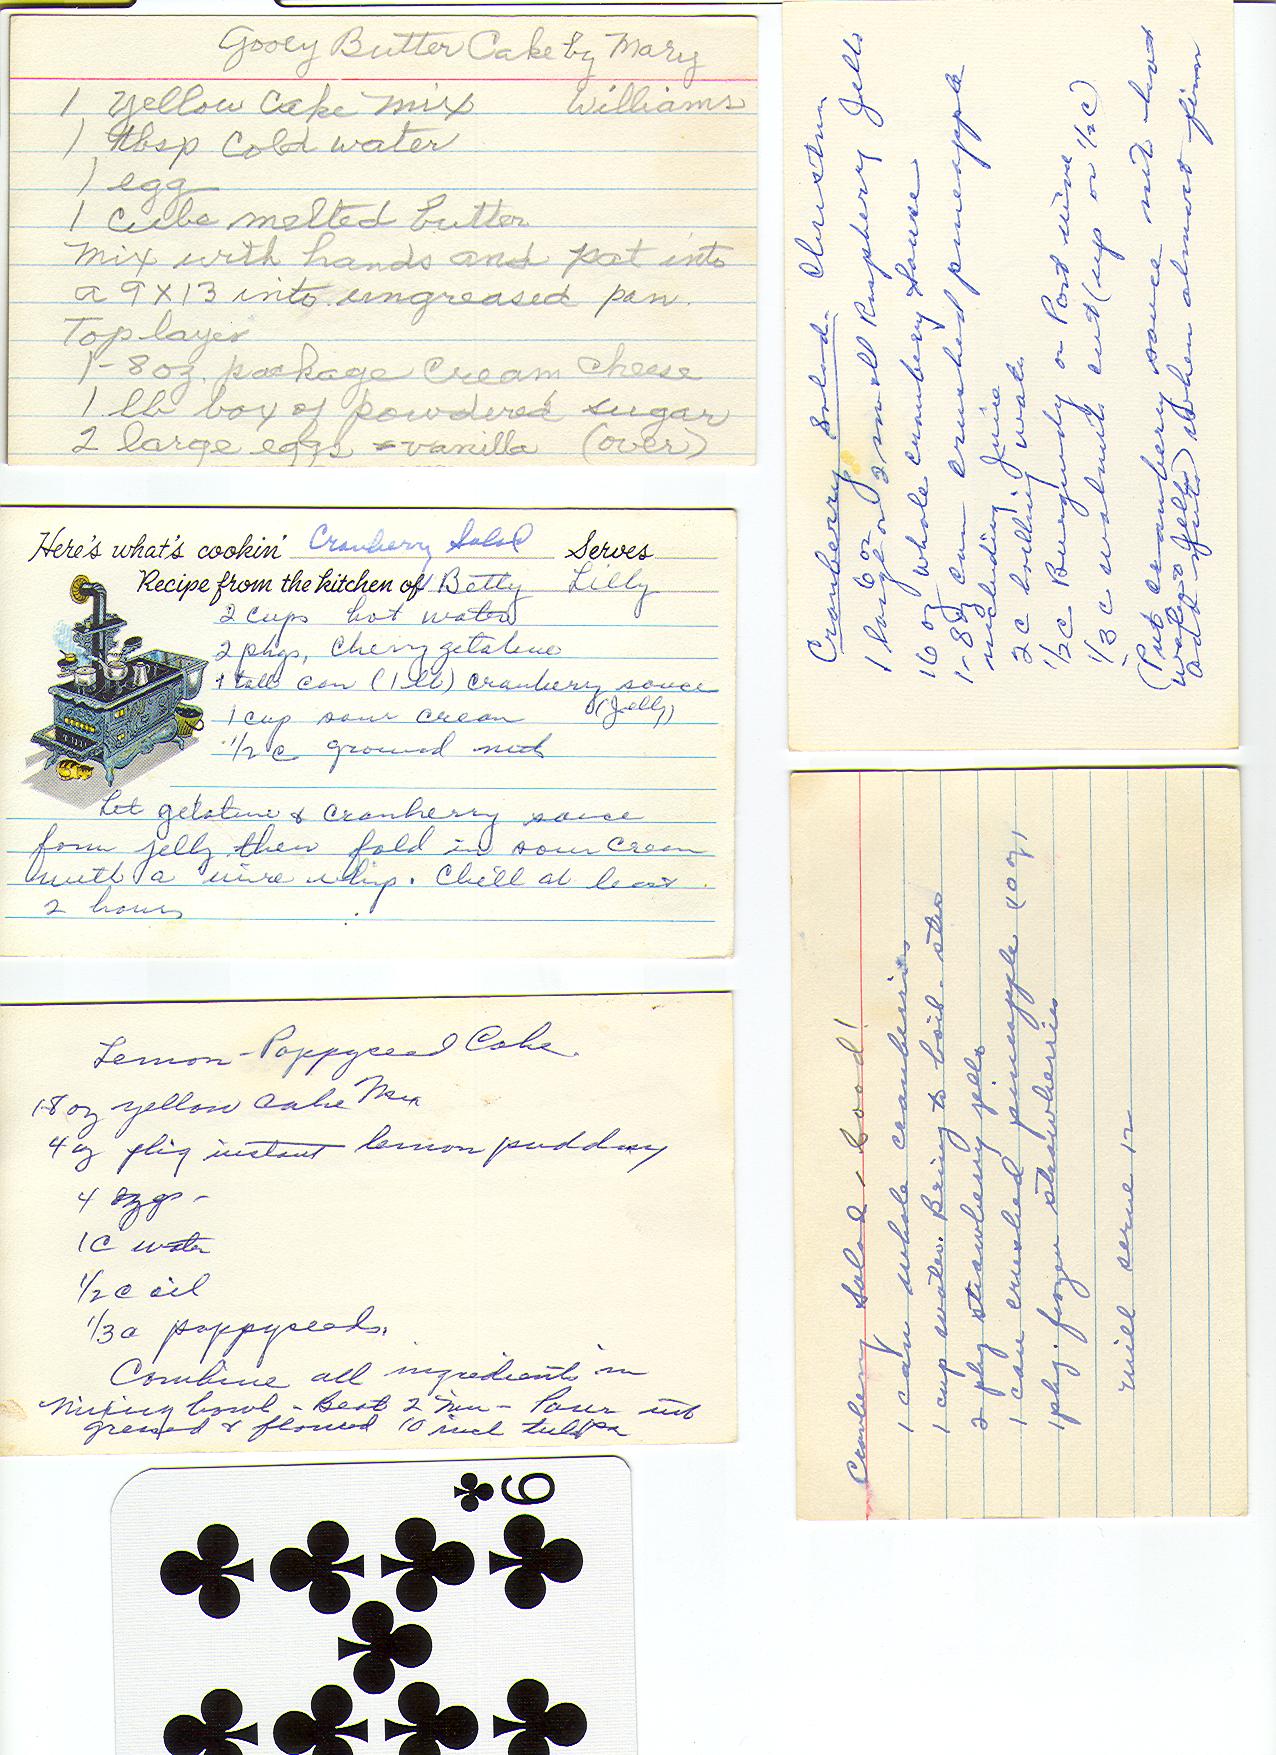 Gooey Butter Cake by Mary
1 Yellow Cake Mix Williams
1 tbsp Cold water
1 egg
1 cube melted butter
Mix with hands and pat into
a 9x13 into ungreased pan.
Top layer
1-8 oz. package Cream Cheese
1 lb box of powdered sugar
2 large eggs vanilla (over)
Here's what's cookin' Cranberry Salad Serves
Recipe from the kitchen of Betty Lilly
2 cups hot water
2 pkgs, Cherry gelatine
1 tall can (1 lb) Cranberry sauce
(Jelly)
1 cup sour cream
1/2 c ground nuts
Let gelatine & Cranberry sauce
form jelly then fold in sour cream
with a wire whip. Chill at least
2 hours
Lemon-Poppyseed Cake
18 oz yellow cake Mix
4 oz pkg instant lemon pudding
4 eggs -
1C water
1/2 C oil
1/3 c poppyseeds.
Combine all ingredients in
Mixing bowl - Beat 2 Min - Pour into
greased & floured 10 inch
9
Cranberry Salad - Christmas
1 large or 2 small Raspberry Jello
16 oz whole cranberry sauce
1-8 oz can crushed pineapple
including juice
2 c boiling water
1/2 C Burgundy or Port wine
1/3 c walnuts cut (up or 1/2 C)
(Put cranberry sauce into hot
water & Jello) when almost firm
add nuts
Cranberry Salad - Good!
1 can whole cranberries
1 cup water. Bring to boil - stir
2 pkg strawberry jello
1 can crushed pineapple (10 oz)
1 pkg. frozen strawberries
will serve 12